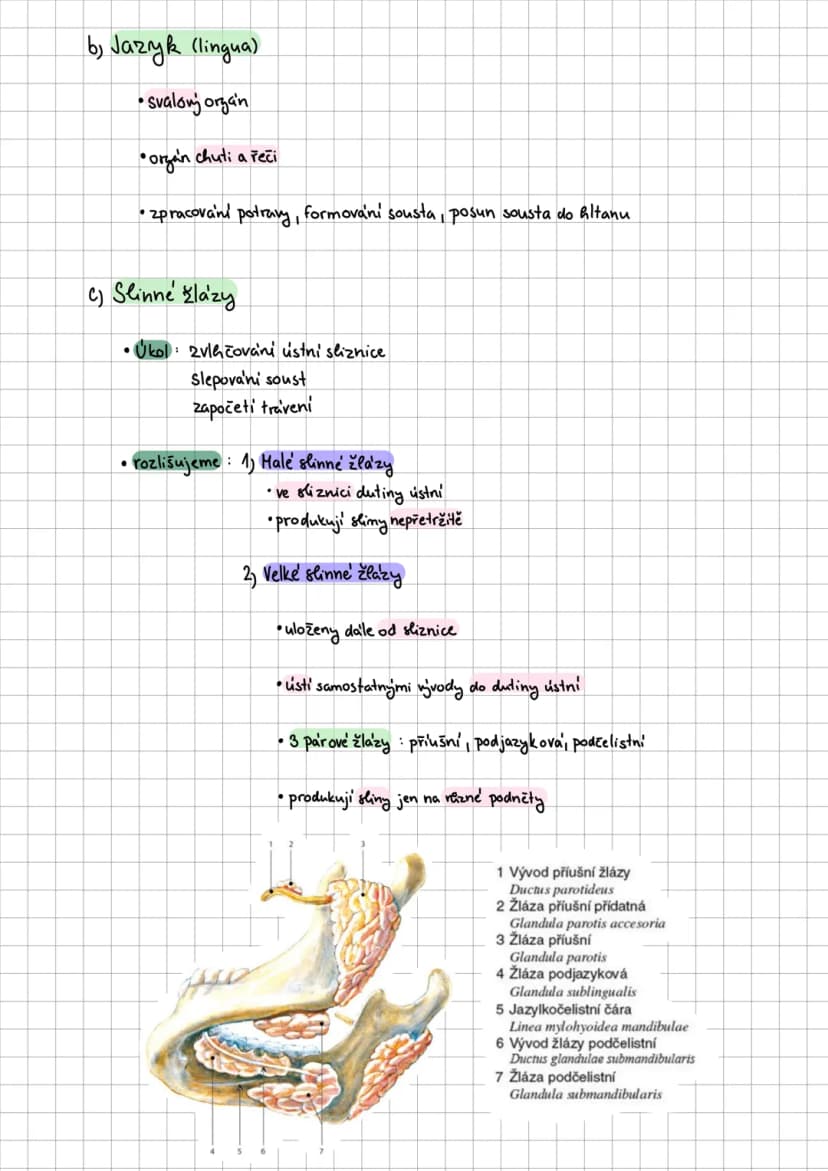 b) Jazyk (lingua)
• svalový orgán
• orgán chuti a řeči
• zpracování potravy, formování sousta, posun sousta do hltanu
c) Slinné žlázy
• Úkol: zvlhčování ústní sliznice
slepování soust
započetí trávení
• rozlišujeme: 1) Malé slinné žlázy
• ve sliznici dutiny ústní
• produkují sliny nepřetržitě
2) Velké slinné žlázy
• uloženy dále od sliznice
• ústí samostatnými vývody do dutiny ústní
• 3 párové žlázy: příušní, podjazyková, podčelistní
• produkují sliny jen na různé podněty
1 2 3
1 Vývod příušní žlázy
Ductus parotideus
2 Žláza příušní přídatná
Glandula parotis accesoria
3 Žláza příušní
Glandula parotis
4 Žláza podjazyková
Glandula sublingualis
5 Jazylkočelistní čára
Linea mylohyoidea mandibulae
6 Vývod žlázy podčelistní
Ductus glandulae submandibularis
7 Žláza podčelistní
Glandula submandibularis
4 5 6 7